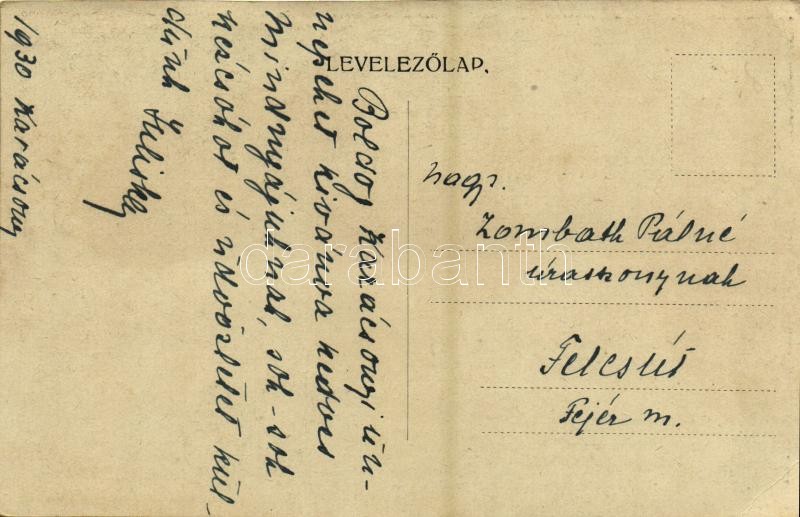 LEVELEZŐLAP.
Boldog Karácsonyi ün-
nepeket kivánva kedves
Mindnyájuknak, sok-sok
kézcsókot és üdvözletet kül-
dünk Juliska
1930 Karácsony
nags.
Zombath Pálné
úrasszonynak
Felcsút
Fejér m.
darabanth